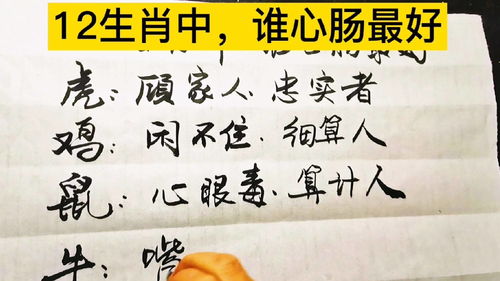 12生肖中，谁心肠最好
虎：顾家人.忠实者
鸡：闲不住.细算人
鼠：心眼毒.算计人
牛：嘴